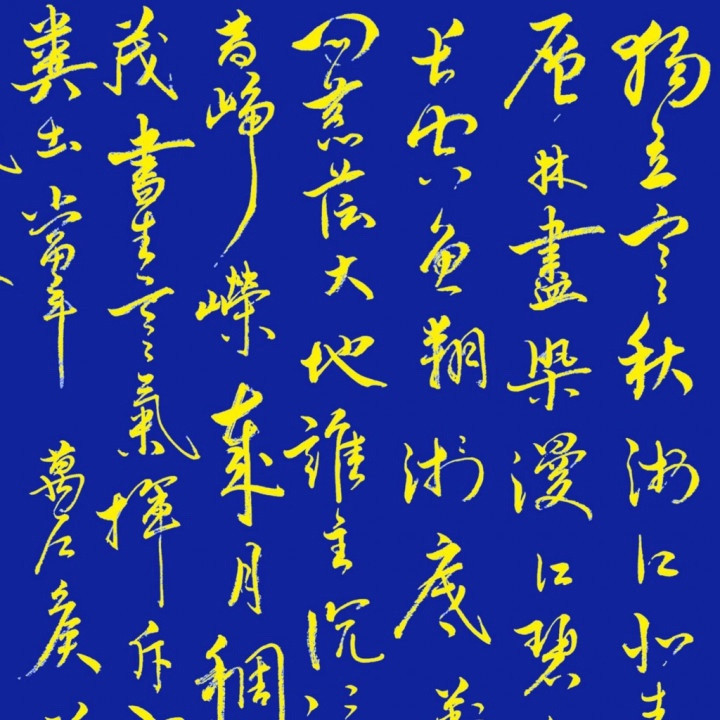 獨立寒秋湘江北去
層林盡染漫江碧
長空魚翔淺底萬
問蒼茫大地誰主沉
昔崢嶸歲月稠
茂書生意氣揮斥
糞土當年萬戶侯